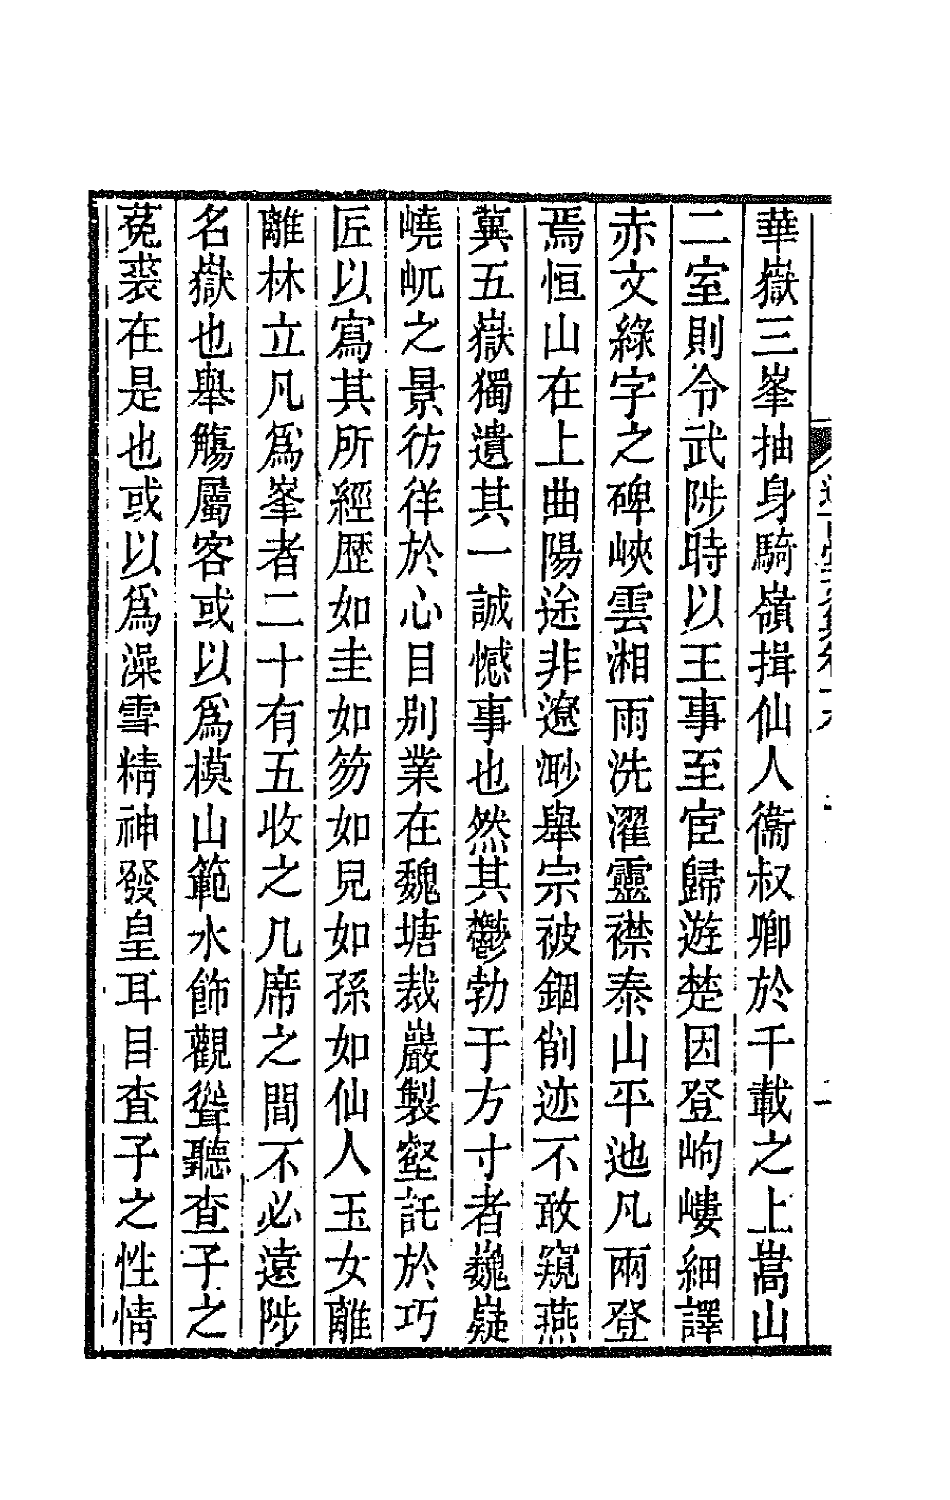 華嶽三峯抽身騎嶺揖仙人衞叔卿於千載之上嵩山
二室則令武陟時以王事至宦歸遊楚因登岣嶁細譯
赤文綠字之碑峽雲湘雨洗濯靈襟泰山平迆凡兩登
焉恒山在上曲陽途非遼渺舉宗被錮削迹不敢窺燕
冀五嶽獨遺其一誠憾事也然其鬱勃于方寸者巍嶷
嶢屼之景彷徉於心目别業在魏塘裁巖製壑託於巧
匠以寫其所經歷如圭如笏如兒如孫如仙人玉女離
離林立凡爲峯者二十有五收之几席之間不必遠陟
名嶽也舉觴屬客或以爲模山範水飾觀聳聽查子之
菟裘在是也或以爲澡雪精神發皇耳目查子之性情